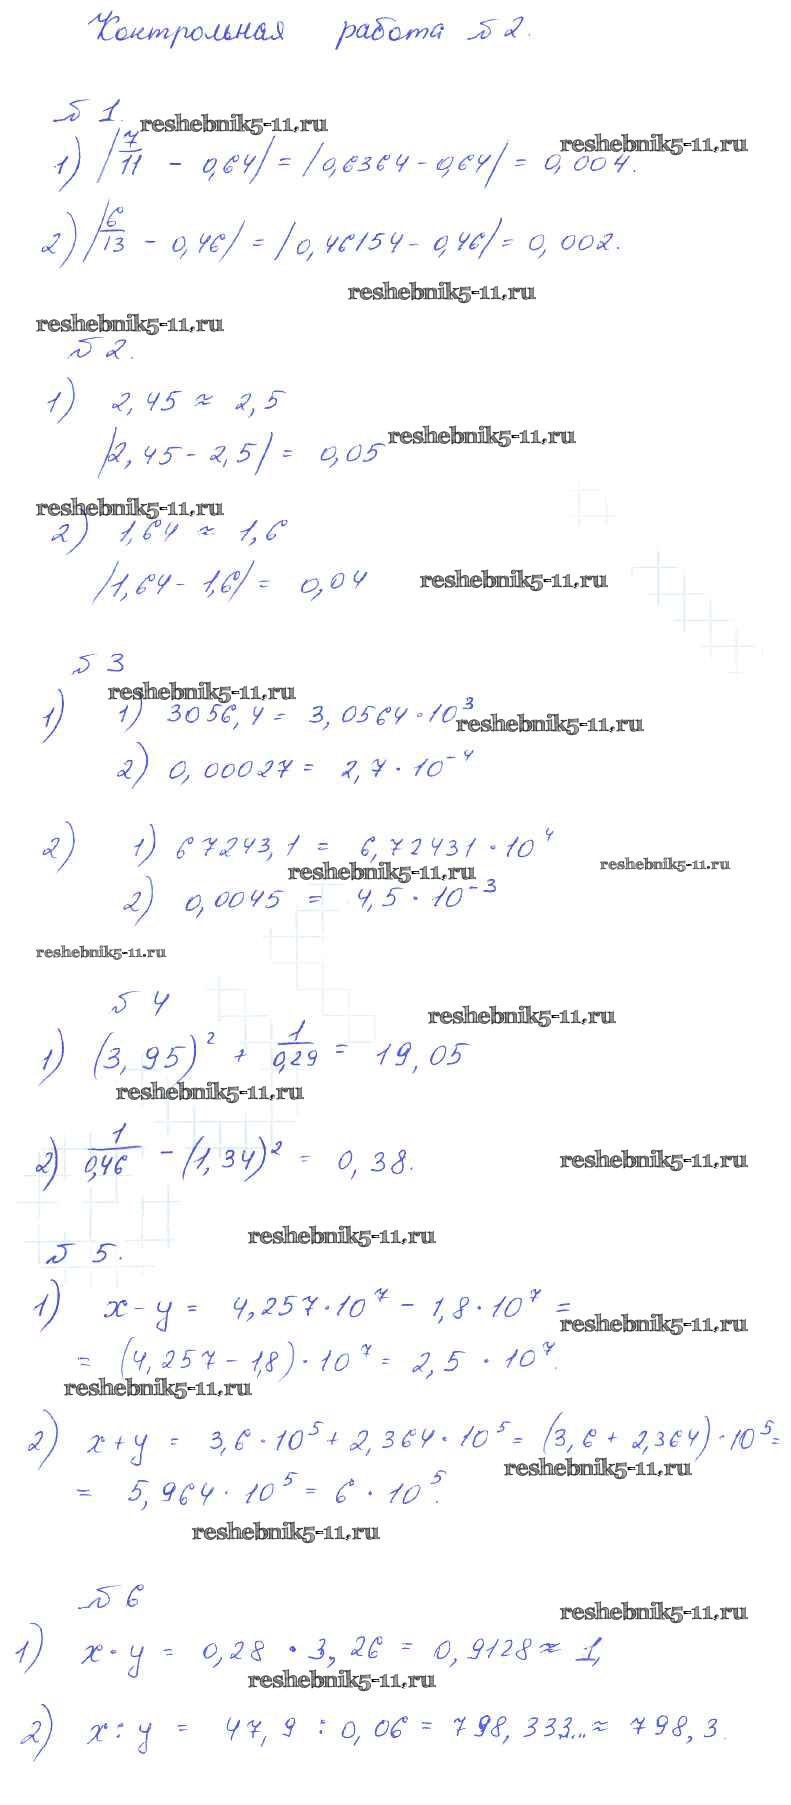 Контрольная работа № 2.
№ 1.
reshebnik5-11.ru
1) |7/11 - 0,64| = |0,6364 - 0,64| = 0,004.
reshebnik5-11.ru
2) |6/13 - 0,46| = |0,46154 - 0,46| = 0,002.
reshebnik5-11.ru
reshebnik5-11.ru
№ 2.
1) 2,45 ≈ 2,5
|2,45 - 2,5| = 0,05
reshebnik5-11.ru
reshebnik5-11.ru
2) 1,64 ≈ 1,6
|1,64 - 1,6| = 0,04
reshebnik5-11.ru
№ 3
reshebnik5-11.ru
1) 1) 3056,4 = 3,0564 · 10³
reshebnik5-11.ru
2) 0,00027 = 2,7 · 10⁻⁴
2) 1) 67243,1 = 6,72431 · 10⁴
reshebnik5-11.ru
reshebnik5-11.ru
2) 0,0045 = 4,5 · 10⁻³
reshebnik5-11.ru
№ 4
reshebnik5-11.ru
1) (3,95)² + 1/0,29 = 19,05
reshebnik5-11.ru
2) 1/0,46 - (1,34)² = 0,38.
reshebnik5-11.ru
reshebnik5-11.ru
№ 5.
1) x - y = 4,257 · 10⁷ - 1,8 · 10⁷ =
reshebnik5-11.ru
= (4,257 - 1,8) · 10⁷ = 2,5 · 10⁷.
reshebnik5-11.ru
2) x + y = 3,6 · 10⁵ + 2,364 · 10⁵ = (3,6 + 2,364) · 10⁵ =
reshebnik5-11.ru
= 5,964 · 10⁵ = 6 · 10⁵.
reshebnik5-11.ru
№ 6
reshebnik5-11.ru
1) x · y = 0,28 · 3,26 = 0,9128 ≈ 1,
reshebnik5-11.ru
2) x : y = 47,9 : 0,06 = 798,333... ≈ 798,3.